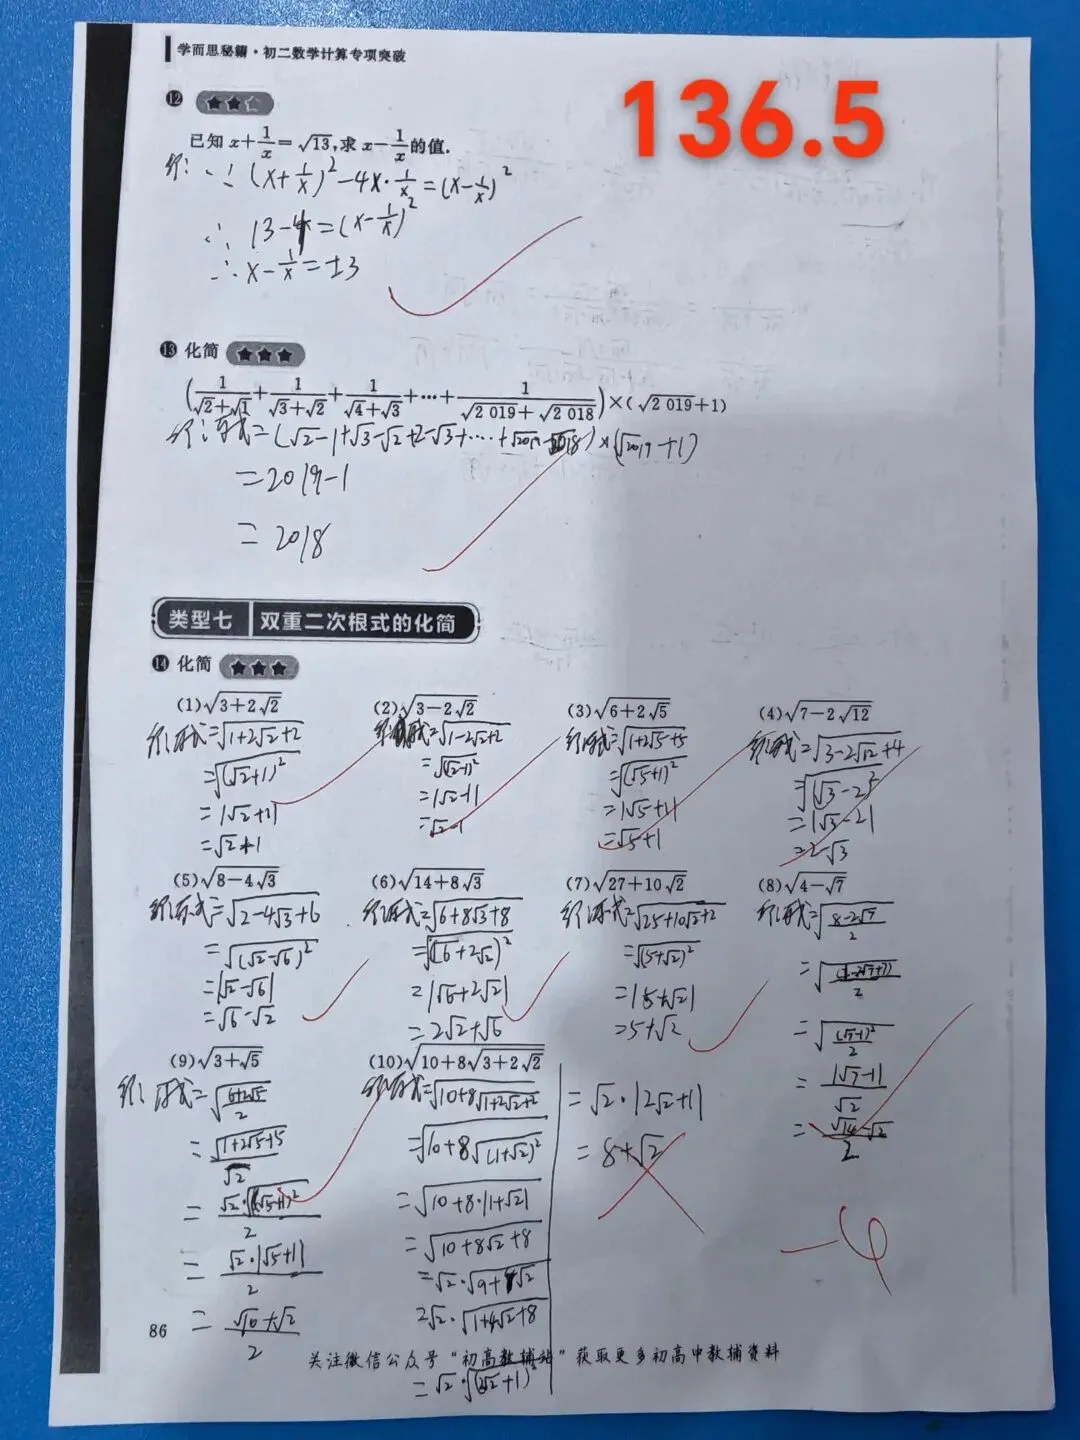 学而思秘籍·初二数学计算专项突破
136.5
⑫ ★★☆
已知 x+1/x=√13,求 x-1/x 的值.
解: ∵ (x+1/x)²-4x·1/x=(x-1/x)²
∴ 13-4=(x-1/x)²
∴ x-1/x=±3
⑬ 化简 ★★★
(1/(√2+√1)+1/(√3+√2)+1/(√4+√3)+···+1/(√2 019+√2 018))×(√2 019+1)
解:原式=(√2-1+√3-√2+2-√3+····+√2019-√2018)×(√2019+1)
=2019-1
=2018
类型七 双重二次根式的化简
⑭ 化简 ★★★
(1)√(3+2√2)
解:原式=√(1+2√2+2)
=√((√2+1)²)
=|√2+1|
=√2+1
(2)√(3-2√2)
解:原式=√(1-2√2+2)
=√((√2-1)²)
=|√2-1|
=√2-1
(3)√(6+2√5)
解:原式=√(1+2√5+5)
=√((√5+1)²)
=|√5+1|
=√5+1
(4)√(7-2√12)
解:原式=√(3-2√12+4)
=√((√3-2)²)
=|√3-2|
=2-√3
(5)√(8-4√3)
解:原式=√(2-4√3+6)
=√((√2-√6)²)
=|√2-√6|
=√6-√2
(6)√(14+8√3)
解:原式=√(6+8√3+8)
=√((√6+2√2)²)
=|√6+2√2|
=2√2+√6
(7)√(27+10√2)
解:原式=√(25+10√2+2)
=√((5+√2)²)
=|5+√2|
=5+√2
(8)√(4-√7)
解:原式=√((8-2√7)/2)
=√((√7-1)²/2)
=|√7-1|/√2
=(√14-√2)/2
(9)√(3+√5)
解:原式=√((6+2√5)/2)
=√(1+2√5+5)/√2
=√2·√((√5+1)²)/2
=√2·|√5+1|/2
=(√10+√2)/2
(10)√(10+8√(3+2√2))
解:原式=√(10+8√(1+2√2+2))
=√(10+8√((1+√2)²))
=√(10+8·|1+√2|)
=√(10+8√2+8)
=√2·√(9+4√2)
=√2·√(1+4√2+8)
=√2·√((2√2+1)²)
=√2·|2√2+1|
=8+√2
-4
86
关注微信公众号“初高教辅站”获取更多初高中教辅资料